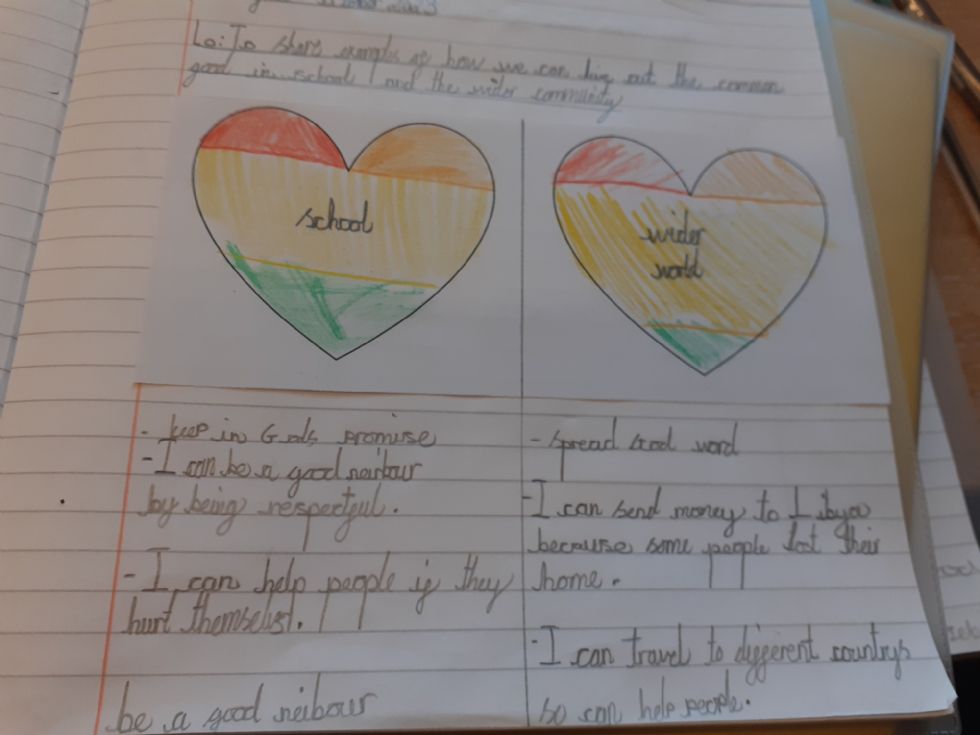 Lo: To share examples of how we can live out the common
good in school and the wider community
school
wider
world
- keep in Gods promise
- I can be a good neibour
by being respectful.
- I can help people if they
hurt themselist.
be a good neibour
- spread Good word
- I can send money to Libya
because some people lost their
home.
- I can travel to different countrys
so can help people.